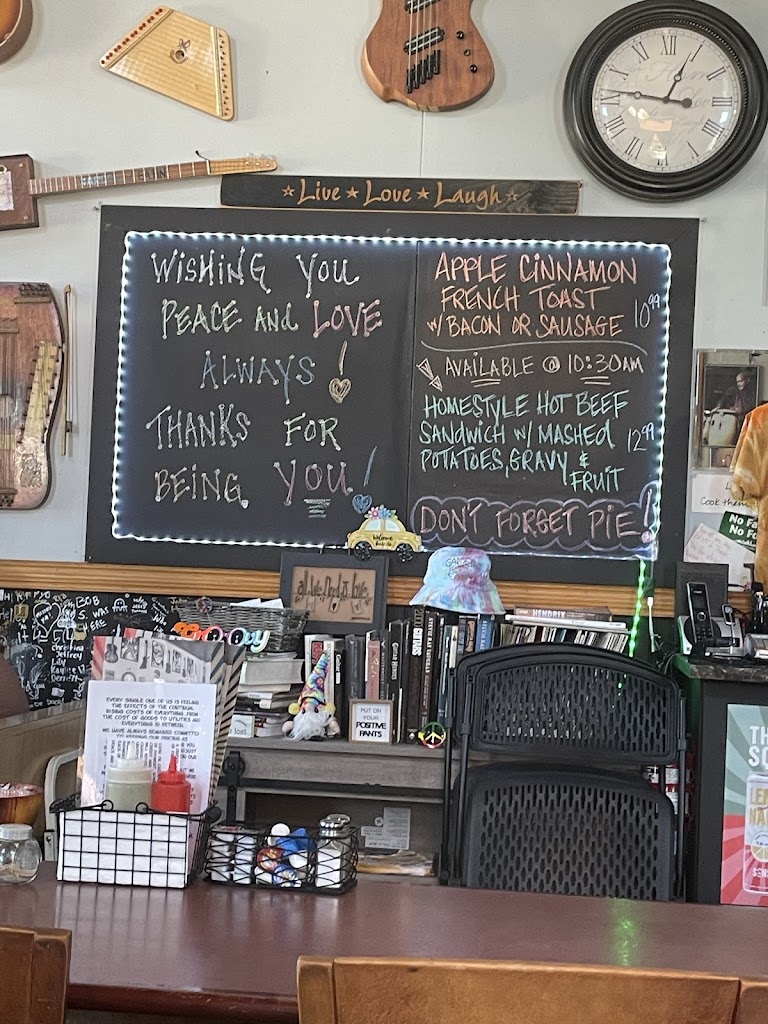 ★ Live ★ Love ★ Laugh ★
WISHING YOU
PEACE AND LOVE
ALWAYS!
THANKS FOR
BEING YOU!
APPLE CINNAMON
FRENCH TOAST
W/ BACON OR SAUSAGE 10.99
AVAILABLE @ 10:30AM
HOMESTYLE HOT BEEF
SANDWICH W/ MASHED 12.99
POTATOES, GRAVY &
FRUIT
DON'T FORGET PIE!
Cook them
No Fa
No Fo
all we need is love
Groovy
HENDRIX
BOB
WAS
HERE
christina
Jeffrey
Lily
PUT ON
YOUR
POSITIVE
PANTS
lost
EVERY SINGLE ONE OF US IS FEELING
THE EFFECTS OF THE CONTINUAL
RISING COSTS OF EVERYTHING. FROM
THE COST OF GOODS TO UTILITIES AND
EVERYTHING IN BETWEEN.
WE HAVE ALWAYS REMAINED COMMITTED
TH
SO
LEM
NA